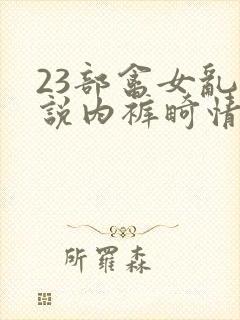 23部畜女乱
説内裤畸情
所罗森